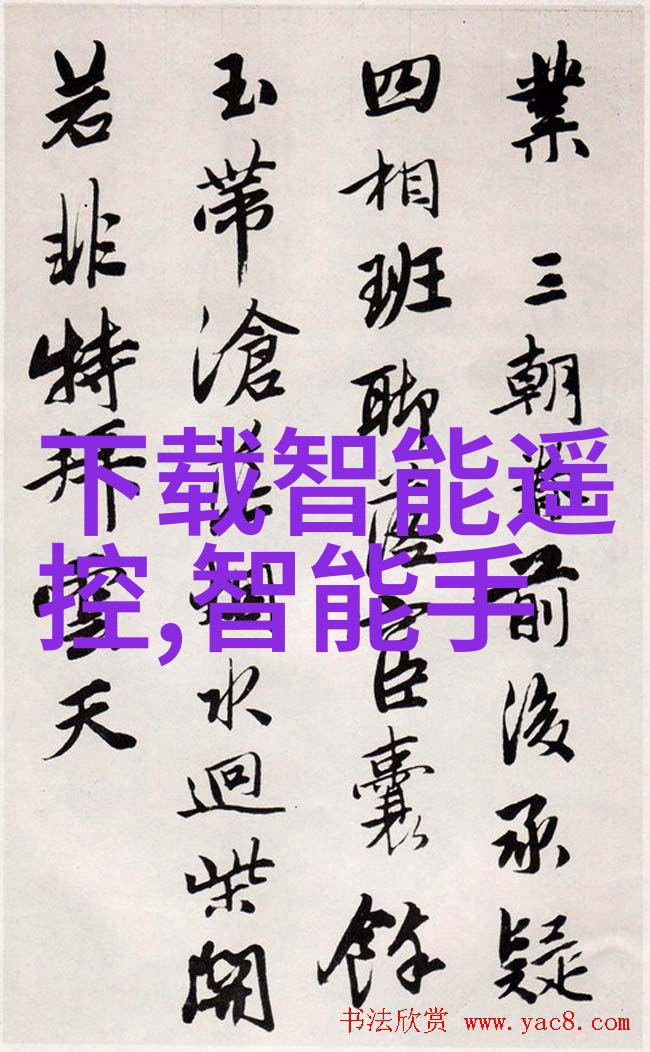 業 三朝前後承疑
四相班聊臣囊餘
玉帶滄水迴柴開
若非特拜天
下载智能遥
控,智能手
书法欣赏 www.yac8.com